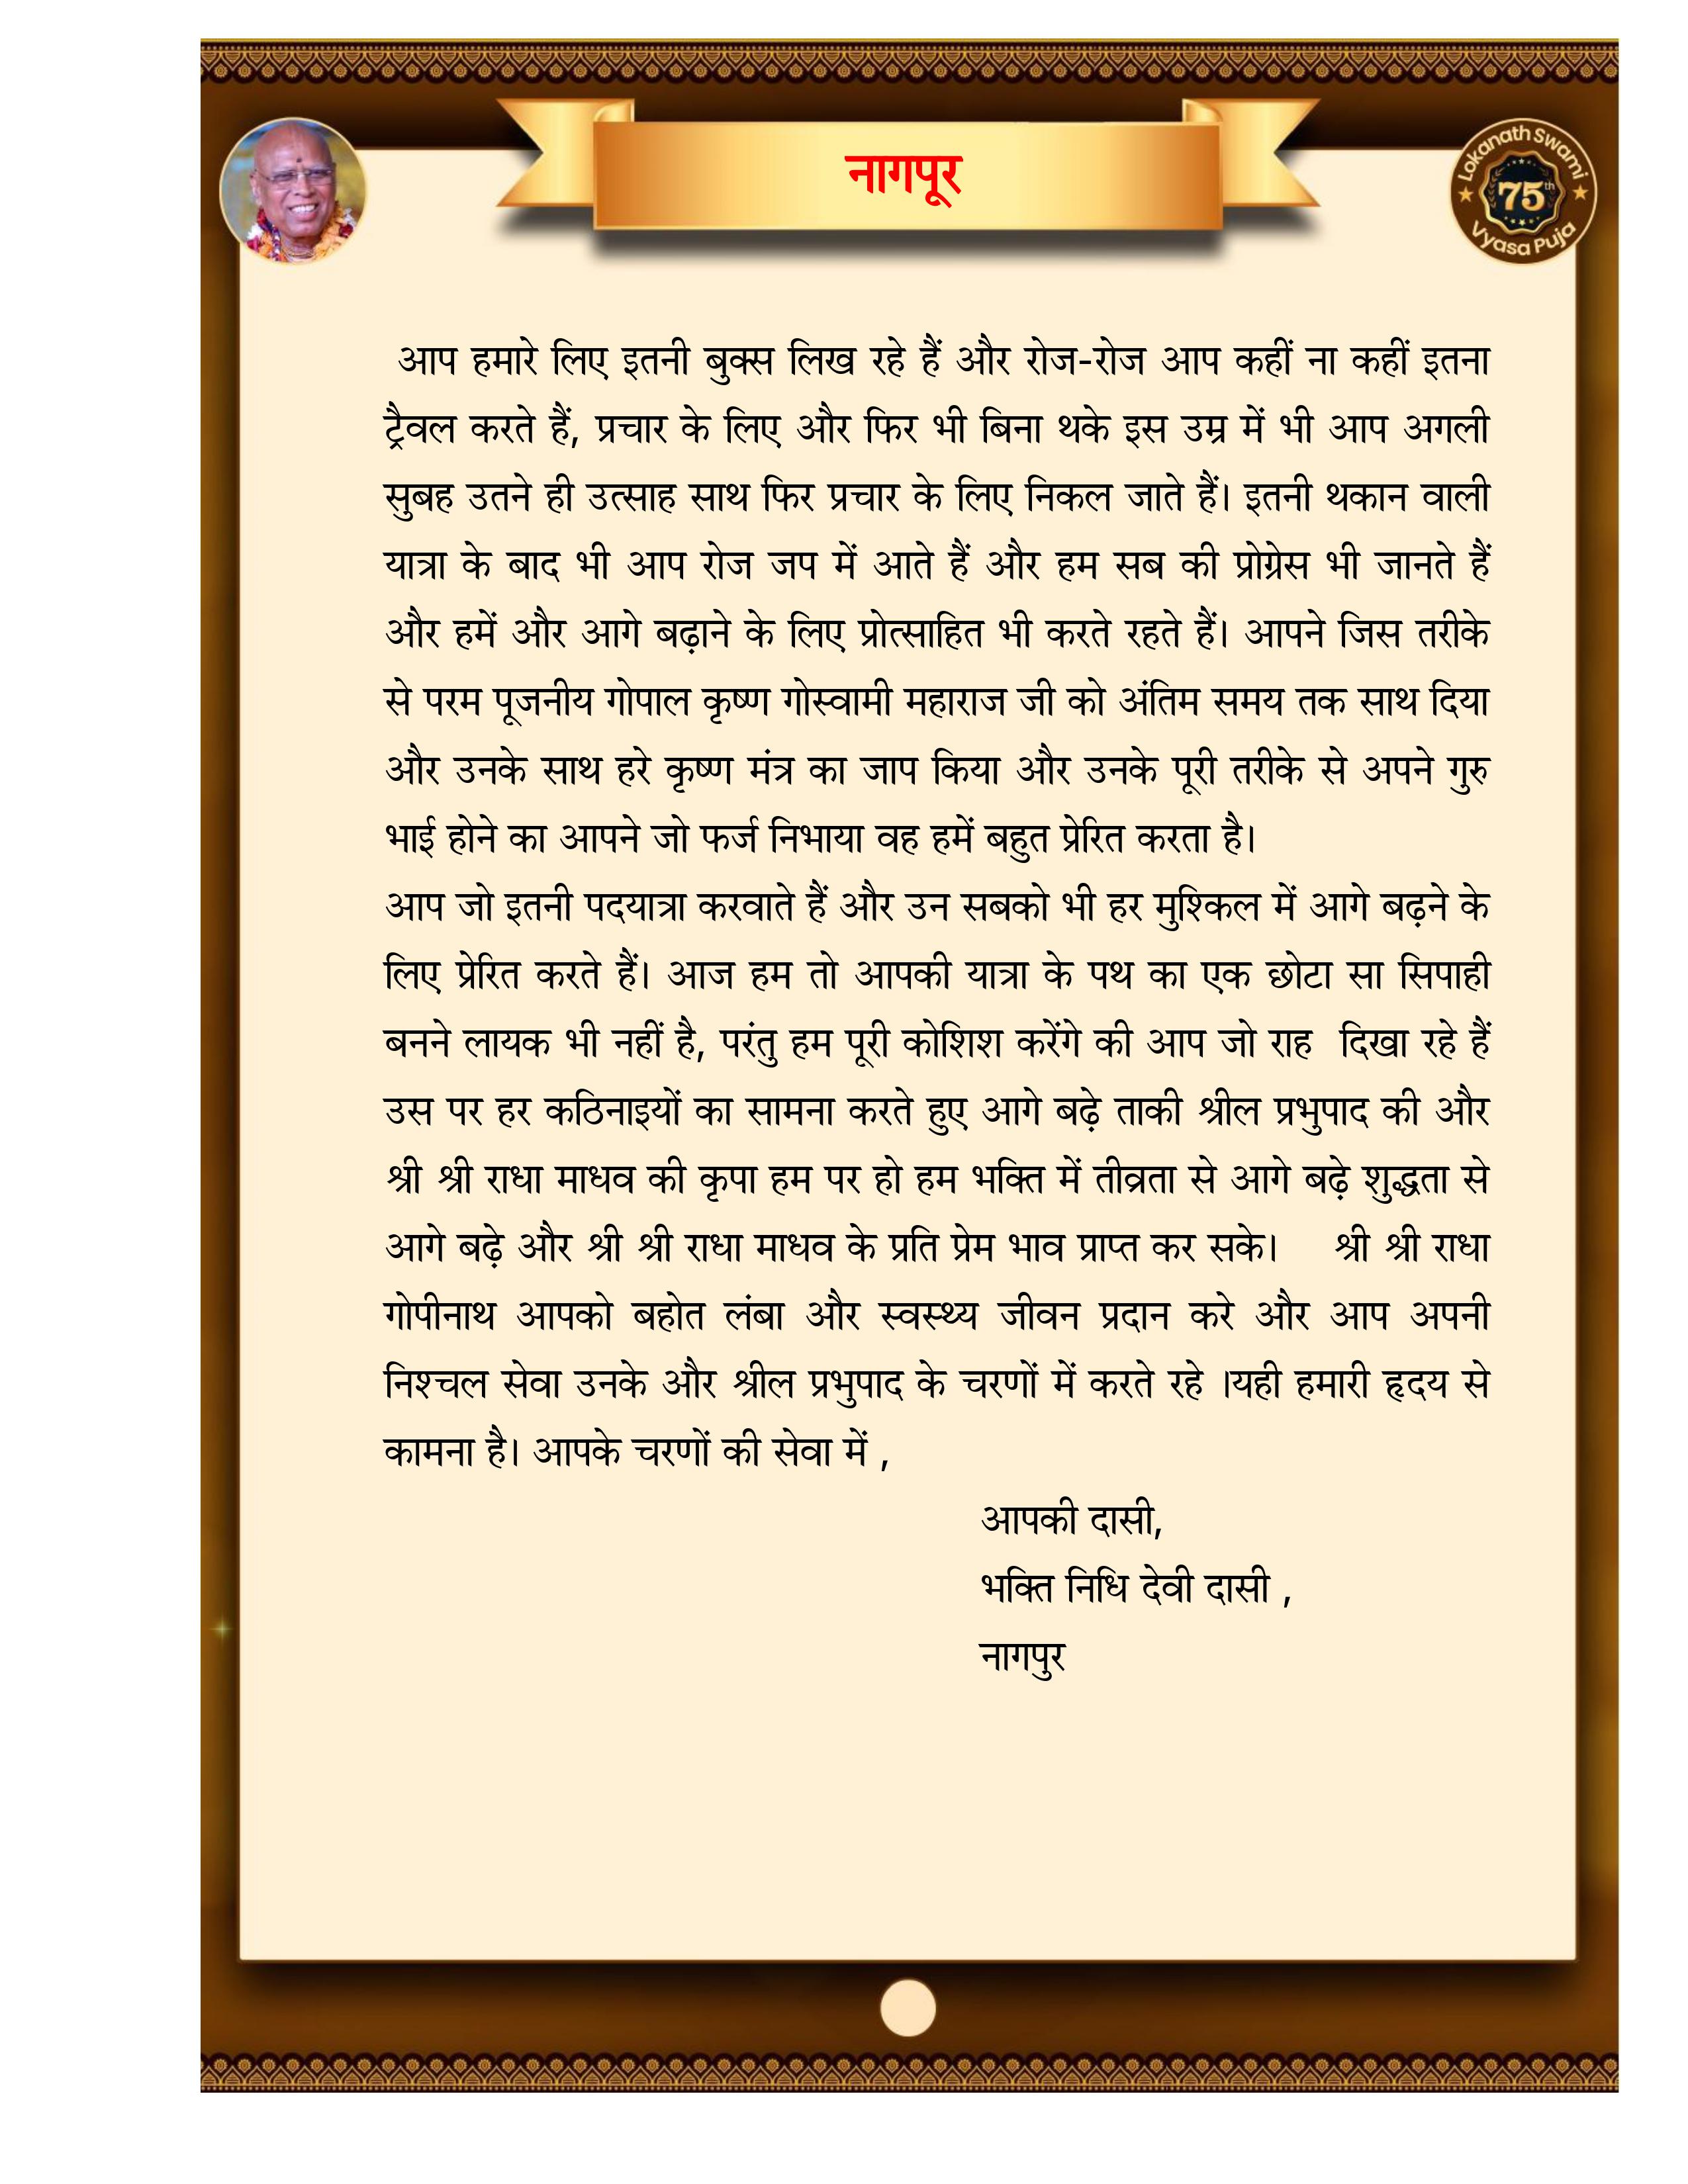 नागपूर
Lokanath Swami
75th
Vyasa Puja
आप हमारे लिए इतनी बुक्स लिख रहे हैं और रोज-रोज आप कहीं ना कहीं इतना
ट्रैवल करते हैं, प्रचार के लिए और फिर भी बिना थके इस उम्र में भी आप अगली
सुबह उतने ही उत्साह साथ फिर प्रचार के लिए निकल जाते हैं। इतनी थकान वाली
यात्रा के बाद भी आप रोज जप में आते हैं और हम सब की प्रोग्रेस भी जानते हैं
और हमें और आगे बढ़ाने के लिए प्रोत्साहित भी करते रहते हैं। आपने जिस तरीके
से परम पूजनीय गोपाल कृष्ण गोस्वामी महाराज जी को अंतिम समय तक साथ दिया
और उनके साथ हरे कृष्ण मंत्र का जाप किया और उनके पूरी तरीके से अपने गुरु
भाई होने का आपने जो फर्ज निभाया वह हमें बहुत प्रेरित करता है।
आप जो इतनी पदयात्रा करवाते हैं और उन सबको भी हर मुश्किल में आगे बढ़ने के
लिए प्रेरित करते हैं। आज हम तो आपकी यात्रा के पथ का एक छोटा सा सिपाही
बनने लायक भी नहीं है, परंतु हम पूरी कोशिश करेंगे की आप जो राह दिखा रहे हैं
उस पर हर कठिनाइयों का सामना करते हुए आगे बढ़े ताकी श्रील प्रभुपाद की और
श्री श्री राधा माधव की कृपा हम पर हो हम भक्ति में तीव्रता से आगे बढ़े शुद्धता से
आगे बढ़े और श्री श्री राधा माधव के प्रति प्रेम भाव प्राप्त कर सके। श्री श्री राधा
गोपीनाथ आपको बहोत लंबा और स्वस्थ्य जीवन प्रदान करे और आप अपनी
निश्चल सेवा उनके और श्रील प्रभुपाद के चरणों में करते रहे ।यही हमारी हृदय से
कामना है। आपके चरणों की सेवा में ,
आपकी दासी,
भक्ति निधि देवी दासी ,
नागपुर